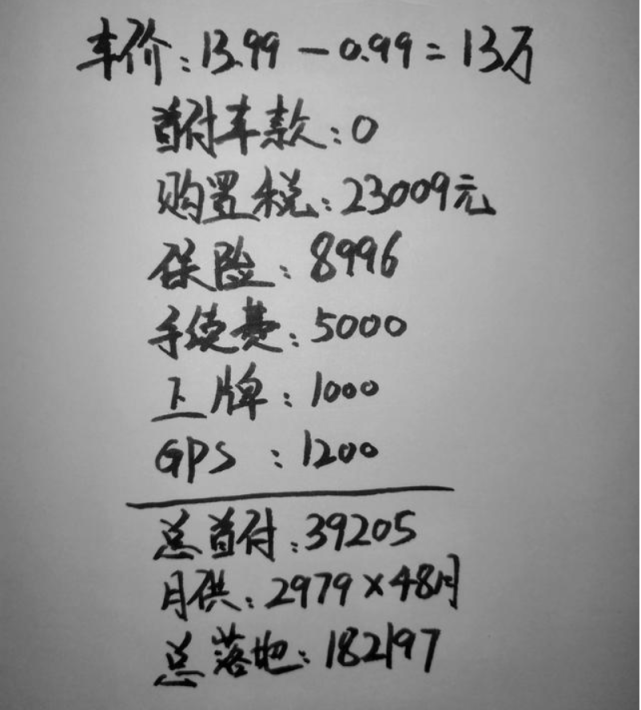 车价：13.99－0.99＝13万
首付车款：0
购置税：23009元
保险：8996
手续费：5000
上牌：1000
GPS：1200
总首付：39205
月供：2979×48月
总落地：182197